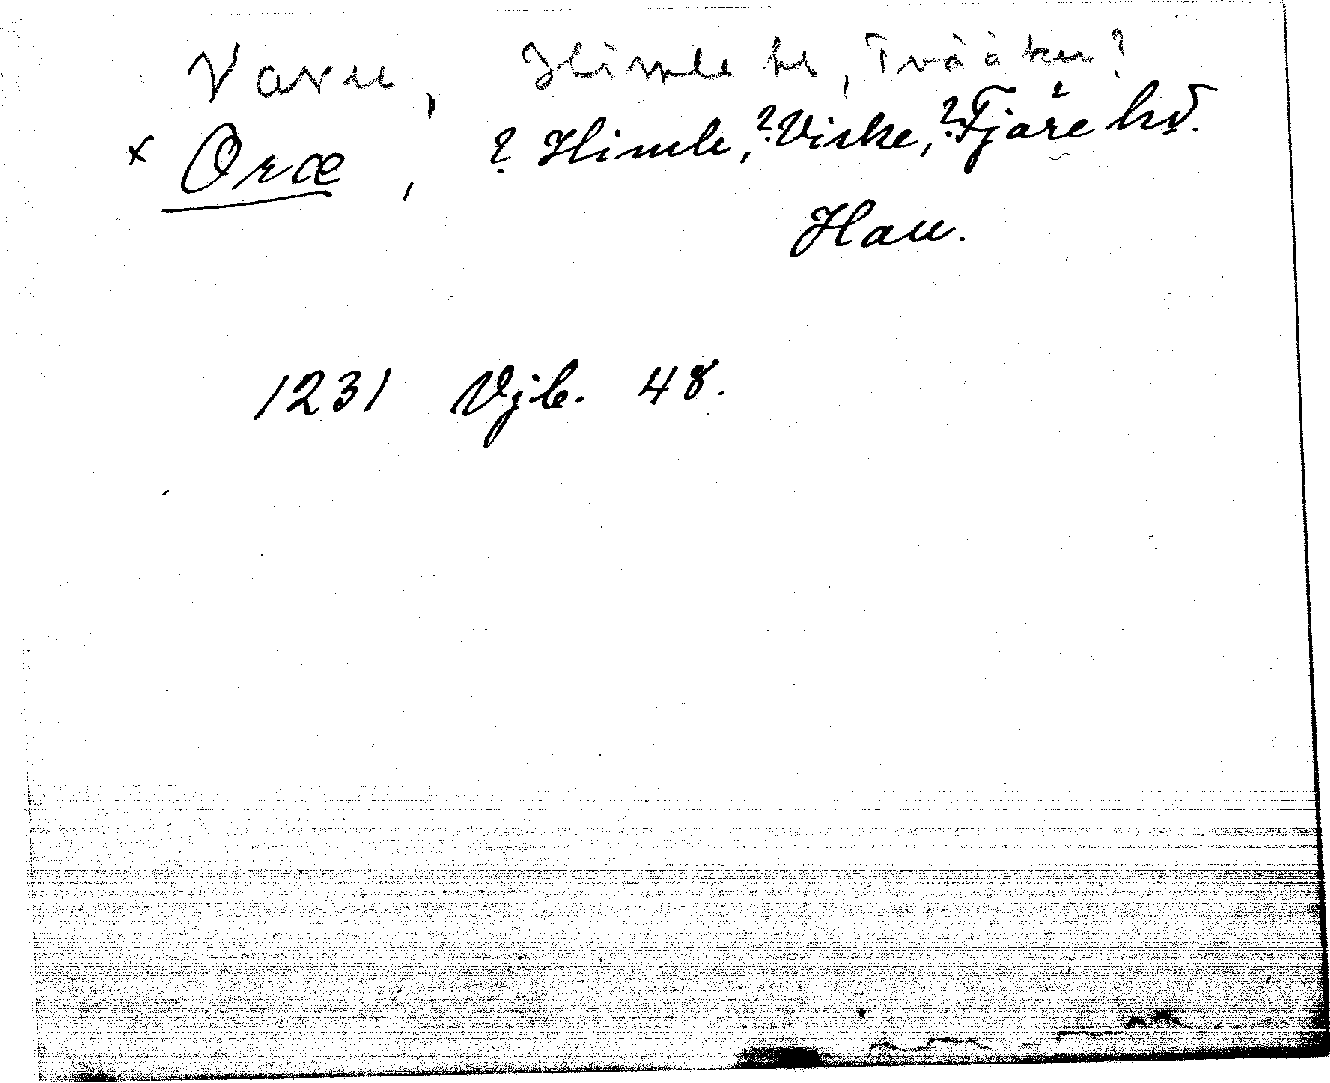 Varu, Himle hd, Tvååker?
x Oræ, ? Himle, ? Viske, ? Fjäre hd.
Hall.
1231 Vjb. 48.